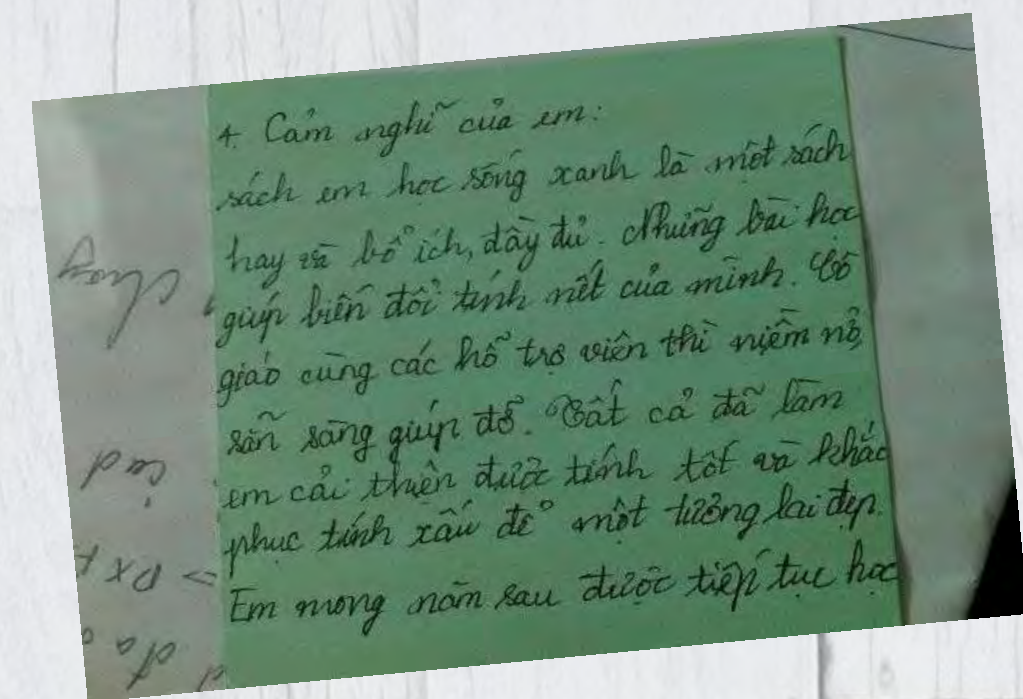 4. Cảm nghĩ của em:
sách em học sống xanh là một sách
hay và bổ ích, đầy đủ. Những bài học
giúp biến đổi tính nết của mình. Cô
giáo cùng các hỗ trợ viên thì niềm nở,
sẵn sàng giúp đỡ. Tất cả đã làm
em cải thiện được tính tốt và khắc
phục tính xấu để một tương lai đẹp.
Em mong năm sau được tiếp tục học